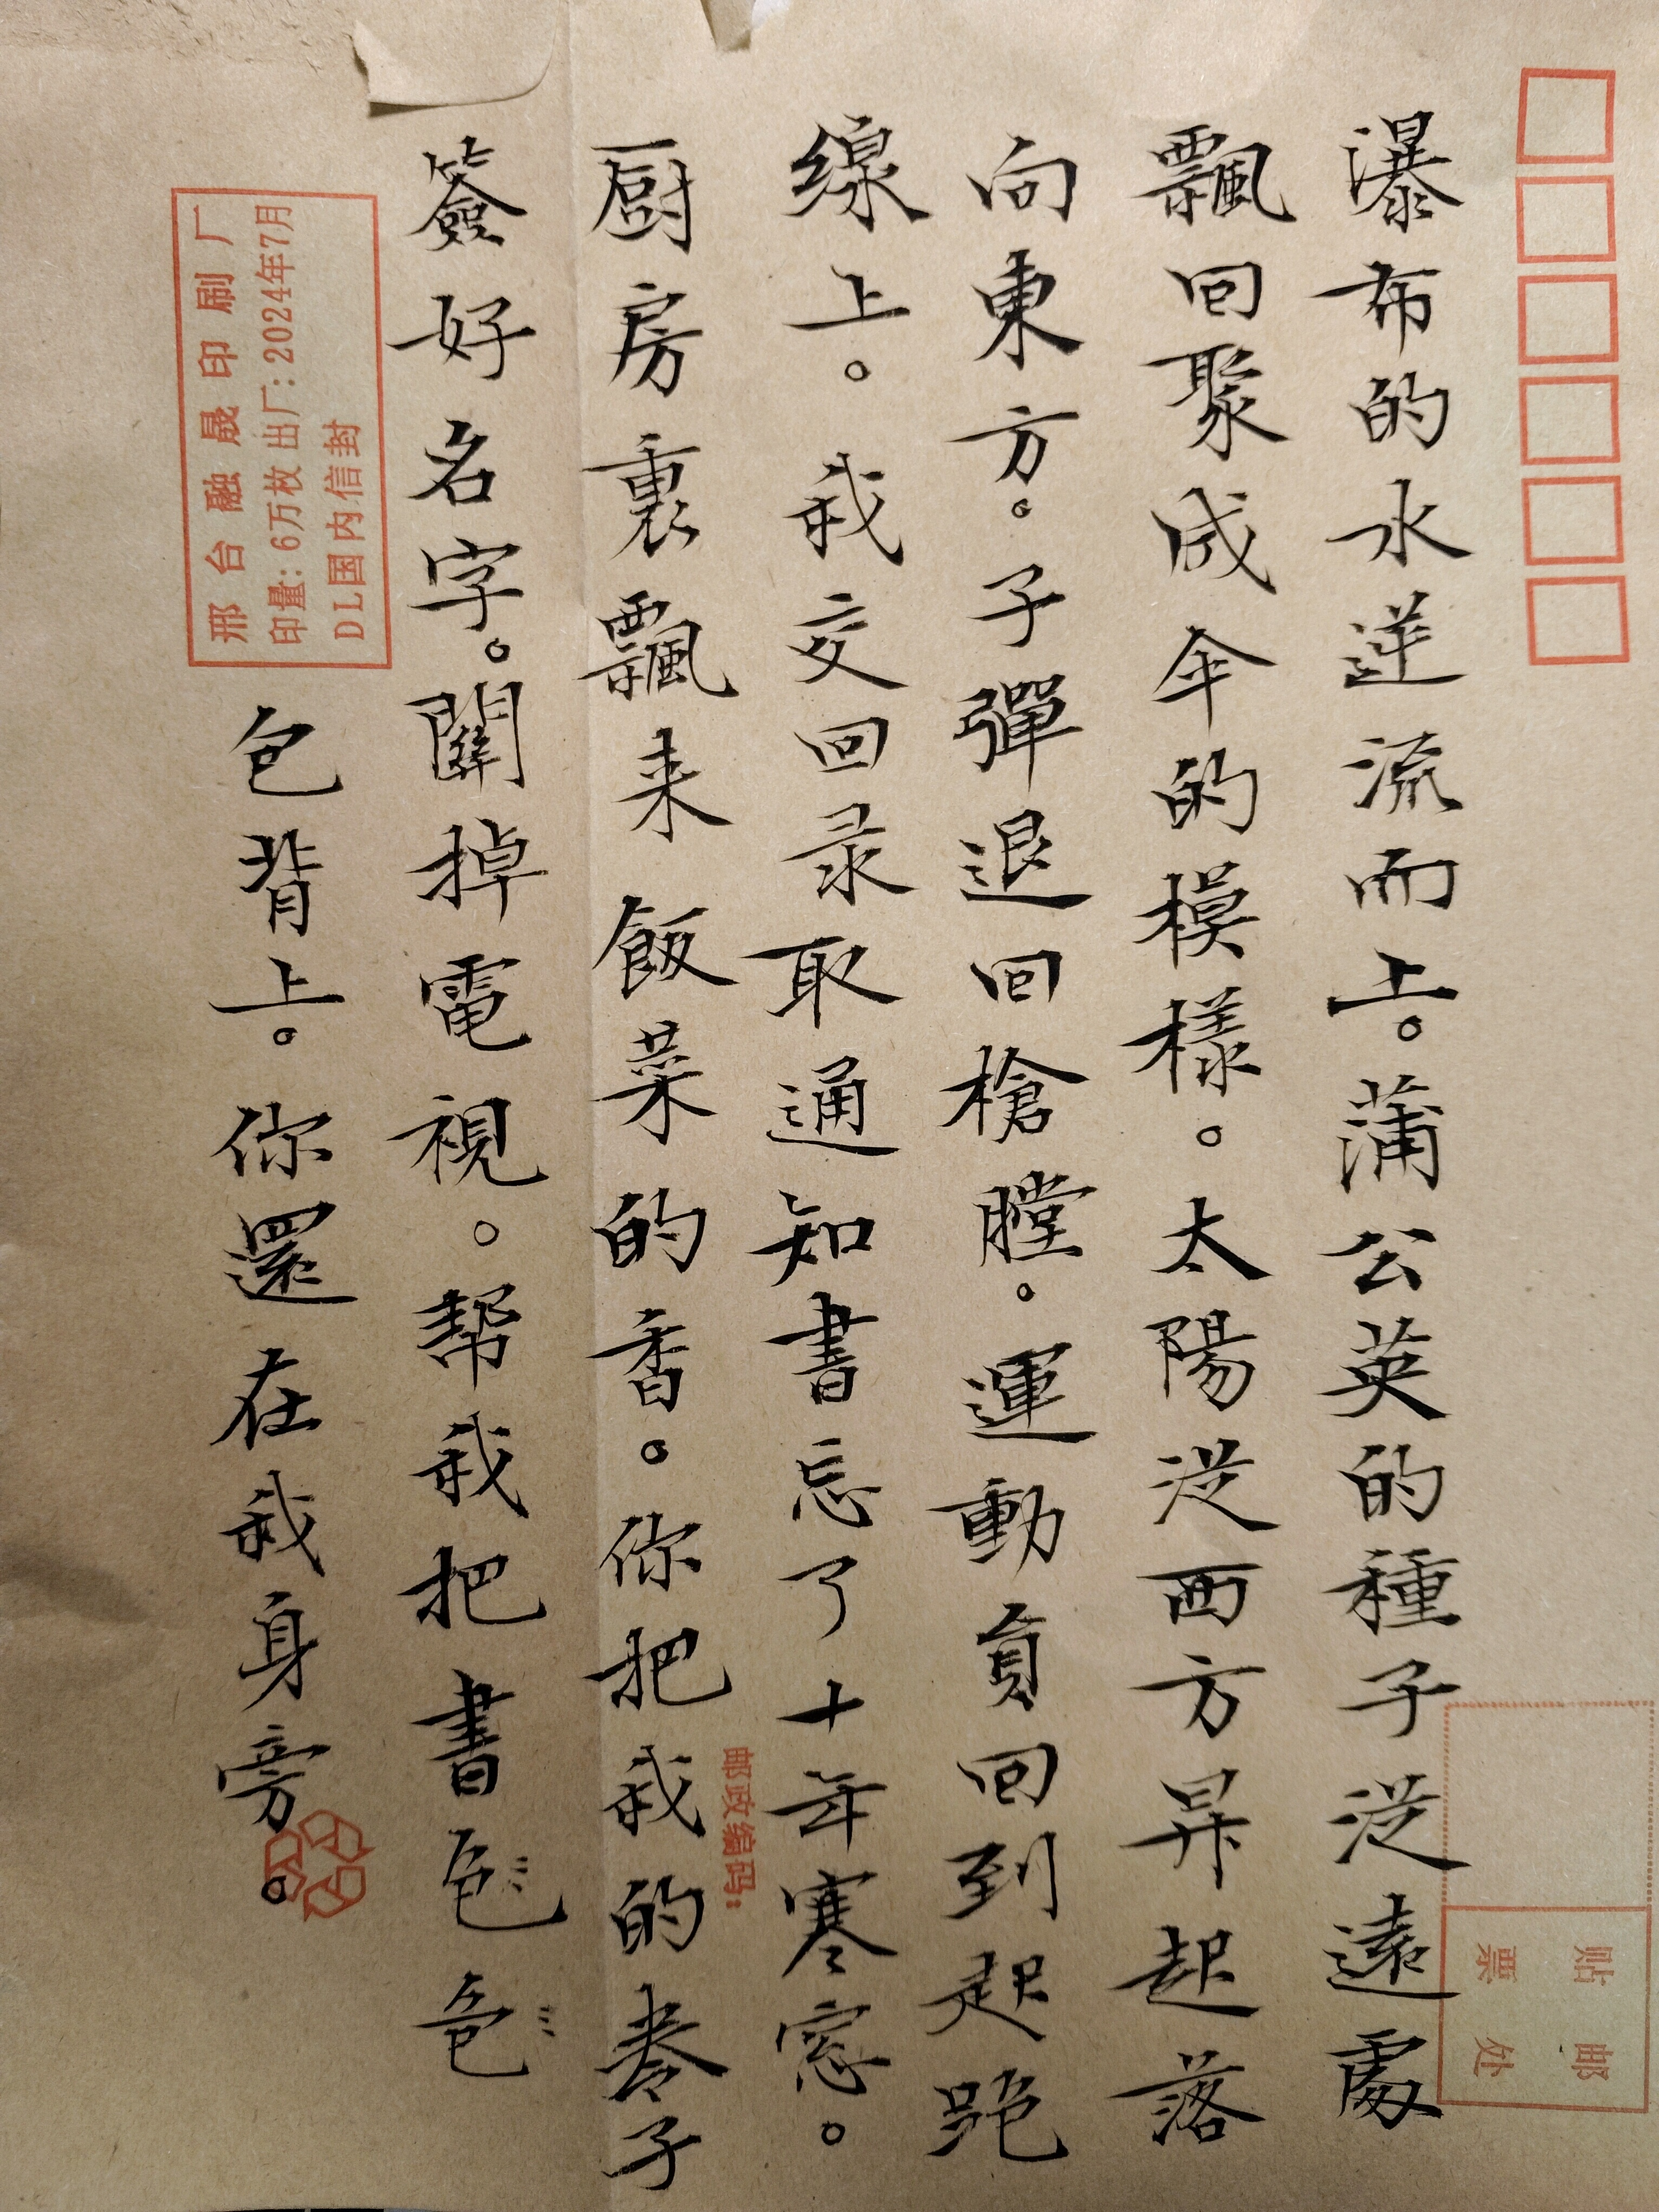 瀑布的水逆流而上。蒲公英的種子從遠處
飄回聚成伞的模樣。太陽從西方昇起落
向東方。子彈退回槍膛。運動員回到起跑
線上。我交回录取通知書忘了十年寒窓。
厨房裏飄来飯菜的香。你把我的卷子
簽好名字。關掉電視。帮我把書色色
包背上。你還在我身旁。
邢台融晟印刷厂
印量:6万枚 出厂:2024年7月
DL国内信封
邮政编码:
贴邮
票处